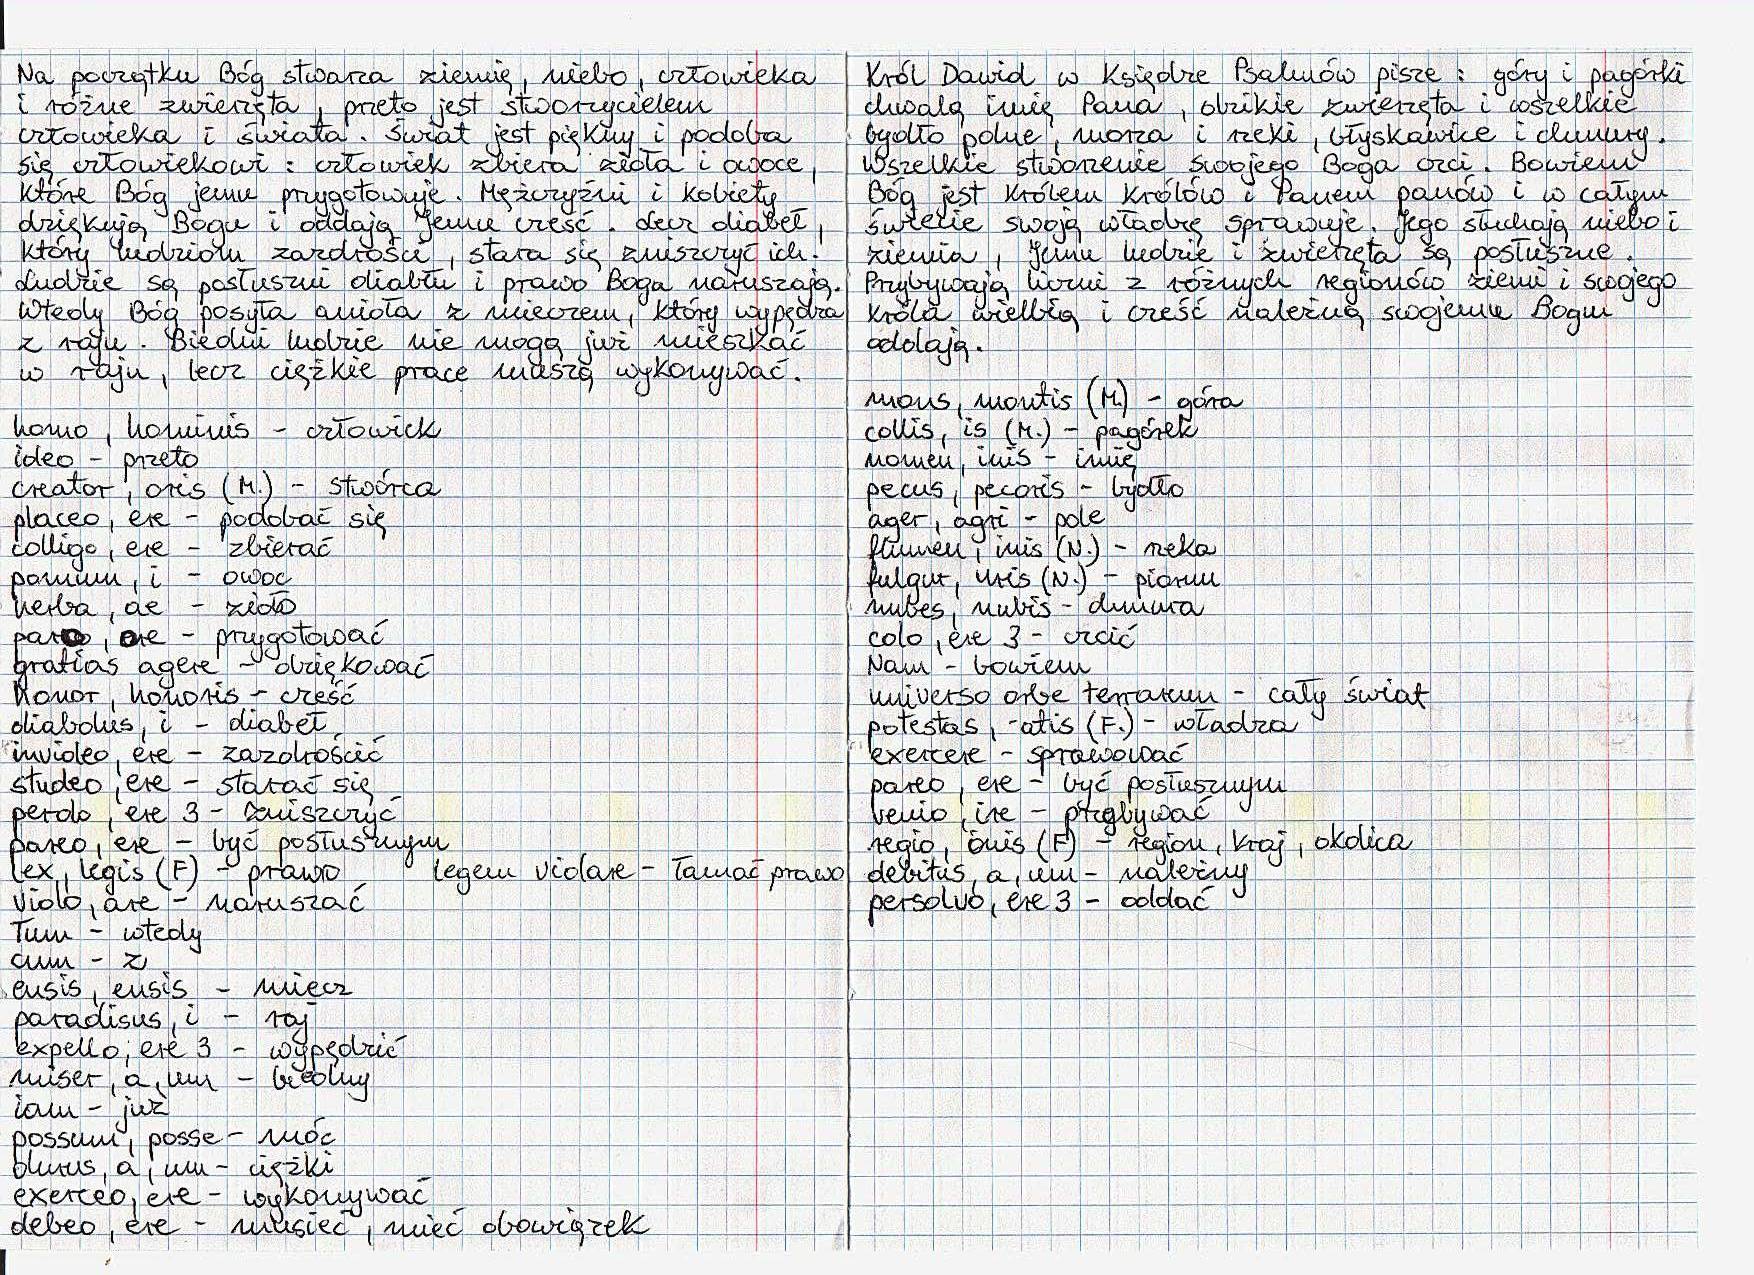 Na początku Bóg stwarza ziemię, niebo, człowieka
i różne zwierzęta, przeto jest stworzycielem
człowieka i świata. Świat jest piękny i podoba
się człowiekowi: człowiek zbiera zioła i owoce,
które Bóg jemu przygotowuje. Mężczyźni i kobiety
dziękują Bogu i oddają Jemu cześć. Lecz diabeł,
który ludziom zazdrości, stara się zniszczyć ich.
Ludzie są posłuszni diabłu i prawo Boga naruszają.
Wtedy Bóg posyła anioła z mieczem, który wypędza
z raju. Biedni ludzie nie mogą już mieszkać
w raju, lecz ciężkie prace muszą wykonywać.
homo, hominis - człowiek
ideo - przeto
creator, oris (M.) - stwórca
placeo, ere - podobać się
colligo, ere - zbierać
pomum, i - owoc
herba, ae - zioło
paro, are - przygotować
gratias agere - dziękować
honor, honoris - cześć
diabolus, i - diabeł
invideo, ere - zazdrościć
studeo, ere - starać się
perdo, ere 3 - zniszczyć
pareo, ere - być posłusznym
lex, legis (F) - prawo legem violare - łamać prawo
violo, are - naruszać
Tum - wtedy
cum - z
ensis, ensis - miecz
paradisus, i - raj
expello, ere 3 - wypędzić
miser, a, um - biedny
iam - już
possum, posse - móc
durus, a, um - ciężki
exerceo, ere - wykonywać
debeo, ere - musieć, mieć obowiązek
Król Dawid w Księdze Psalmów pisze: góry i pagórki
chwalą imię Pana, dzikie zwierzęta i wszelkie
bydło polne, morza i rzeki, błyskawice i chmury.
Wszelkie stworzenie swojego Boga czci. Bowiem
Bóg jest Królem Królów i Panem panów i w całym
świecie swoją władzę sprawuje. Jego słuchają niebo i
ziemia, Jemu ludzie i zwierzęta są posłuszne.
Przybywają liczni z różnych regionów ziemi i swojego
Króla wielbią i cześć należną swojemu Bogu
oddają.
mons, montis (M.) - góra
collis, is (M.) - pagórek
nomen, inis - imię
pecus, pecoris - bydło
ager, agri - pole
flumen, inis (N.) - rzeka
fulgur, uris (N.) - piorun
nubes, nubis - chmura
colo, ere 3 - czcić
Nam - bowiem
universo orbe terrarum - cały świat
potestas, -atis (F.) - władza
exercere - sprawować
pareo, ere - być posłusznym
venio, ire - przybywać
regio, onis (F) - region, kraj, okolica
debitus, a, um - należny
persolvo, ere 3 - oddać